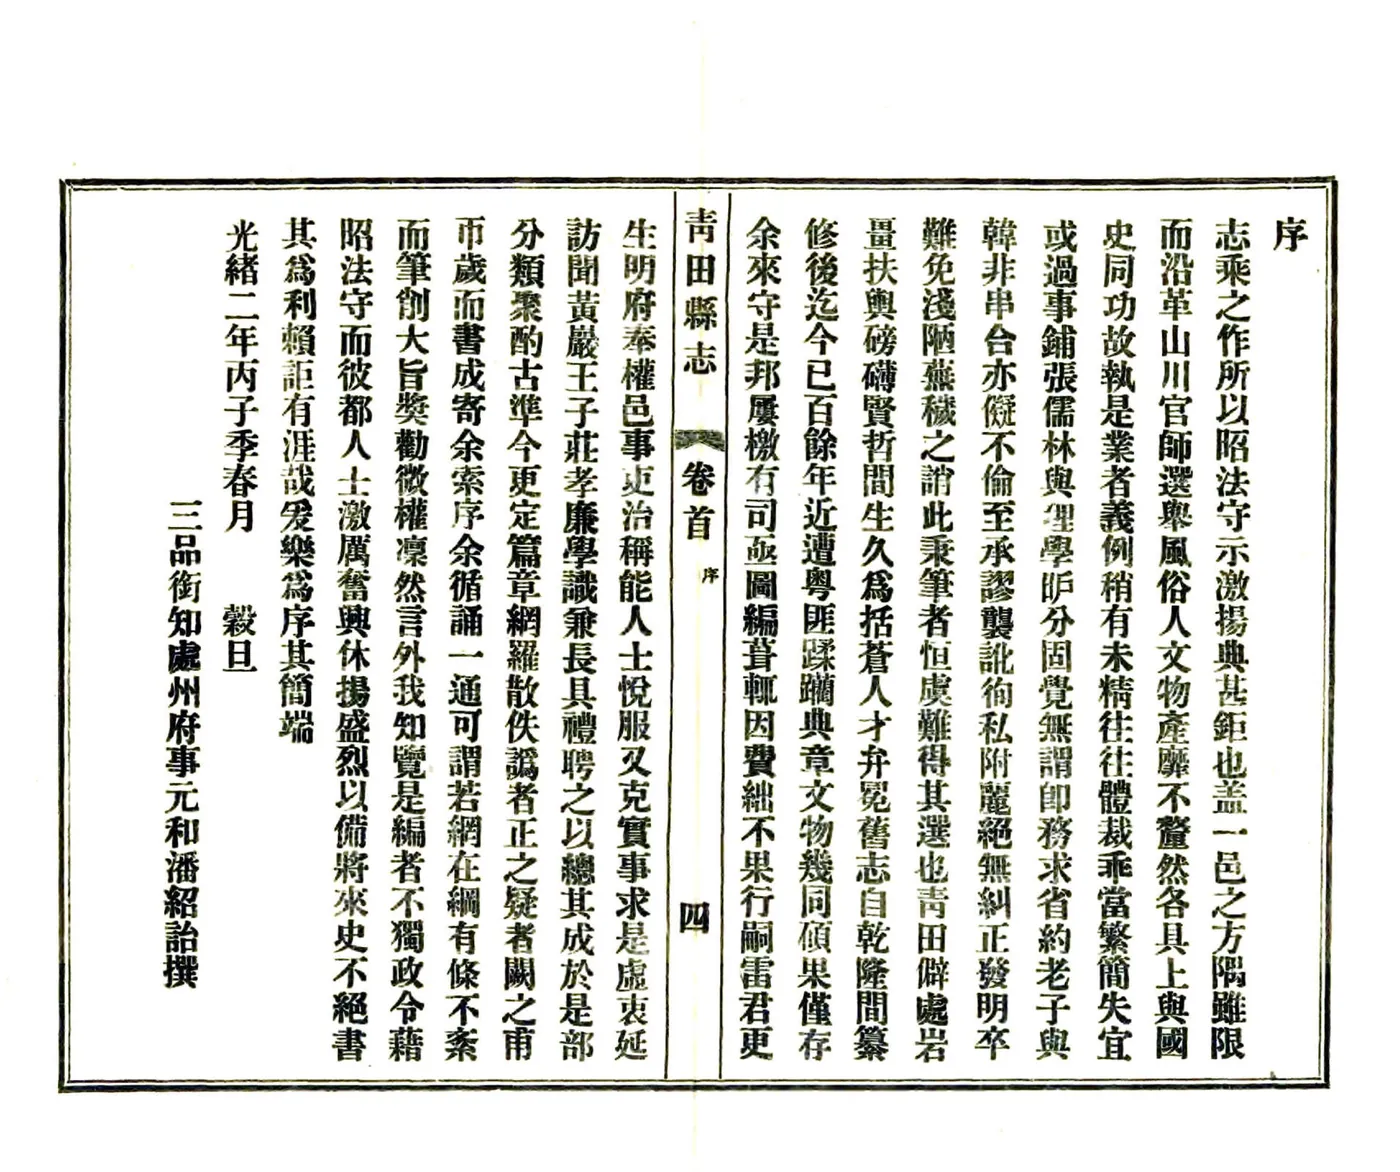 序
志乘之作所以昭法守示激揚典甚鉅也盖一邑之方隅雖限
而沿革山川官師選舉風俗人文物產靡不釐然各具上與國
史同功故執是業者義例稍有未精往往體裁乖當繁簡失宜
或過事鋪張儒林與理學昈分固覺無謂卽務求省約老子與
韓非串合亦儗不倫至承謬襲訛徇私附麗絕無糾正發明卒
難免淺陋蕪穢之誚此秉筆者恒虞難得其選也靑田僻處岩
畺扶輿磅礡賢哲間生久爲括蒼人才弁冕舊志自乾隆間纂
修後迄今已百餘年近遭粤匪蹂躪典章文物幾同碩果僅存
余來守是邦屢檄有司亟圖編葺輒因費絀不果行嗣雷君更
靑田縣志
卷首
序
四
生明府奉權邑事吏治稱能人士悅服又克實事求是虛衷延
訪聞黃巖王子莊孝廉學識兼長具禮聘之以總其成於是部
分類聚酌古準今更定篇章網羅散佚譌者正之疑者闕之甫
帀歲而書成寄余索序余循誦一通可謂若網在綱有條不紊
而筆削大旨獎勸微權凜然言外我知覽是編者不獨政令藉
昭法守而彼都人士激厲奮興休揚盛烈以備將來史不絕書
其爲利賴詎有涯哉爰樂爲序其簡端
光緖二年丙子季春月 穀旦
三品銜知處州府事元和潘紹詒撰